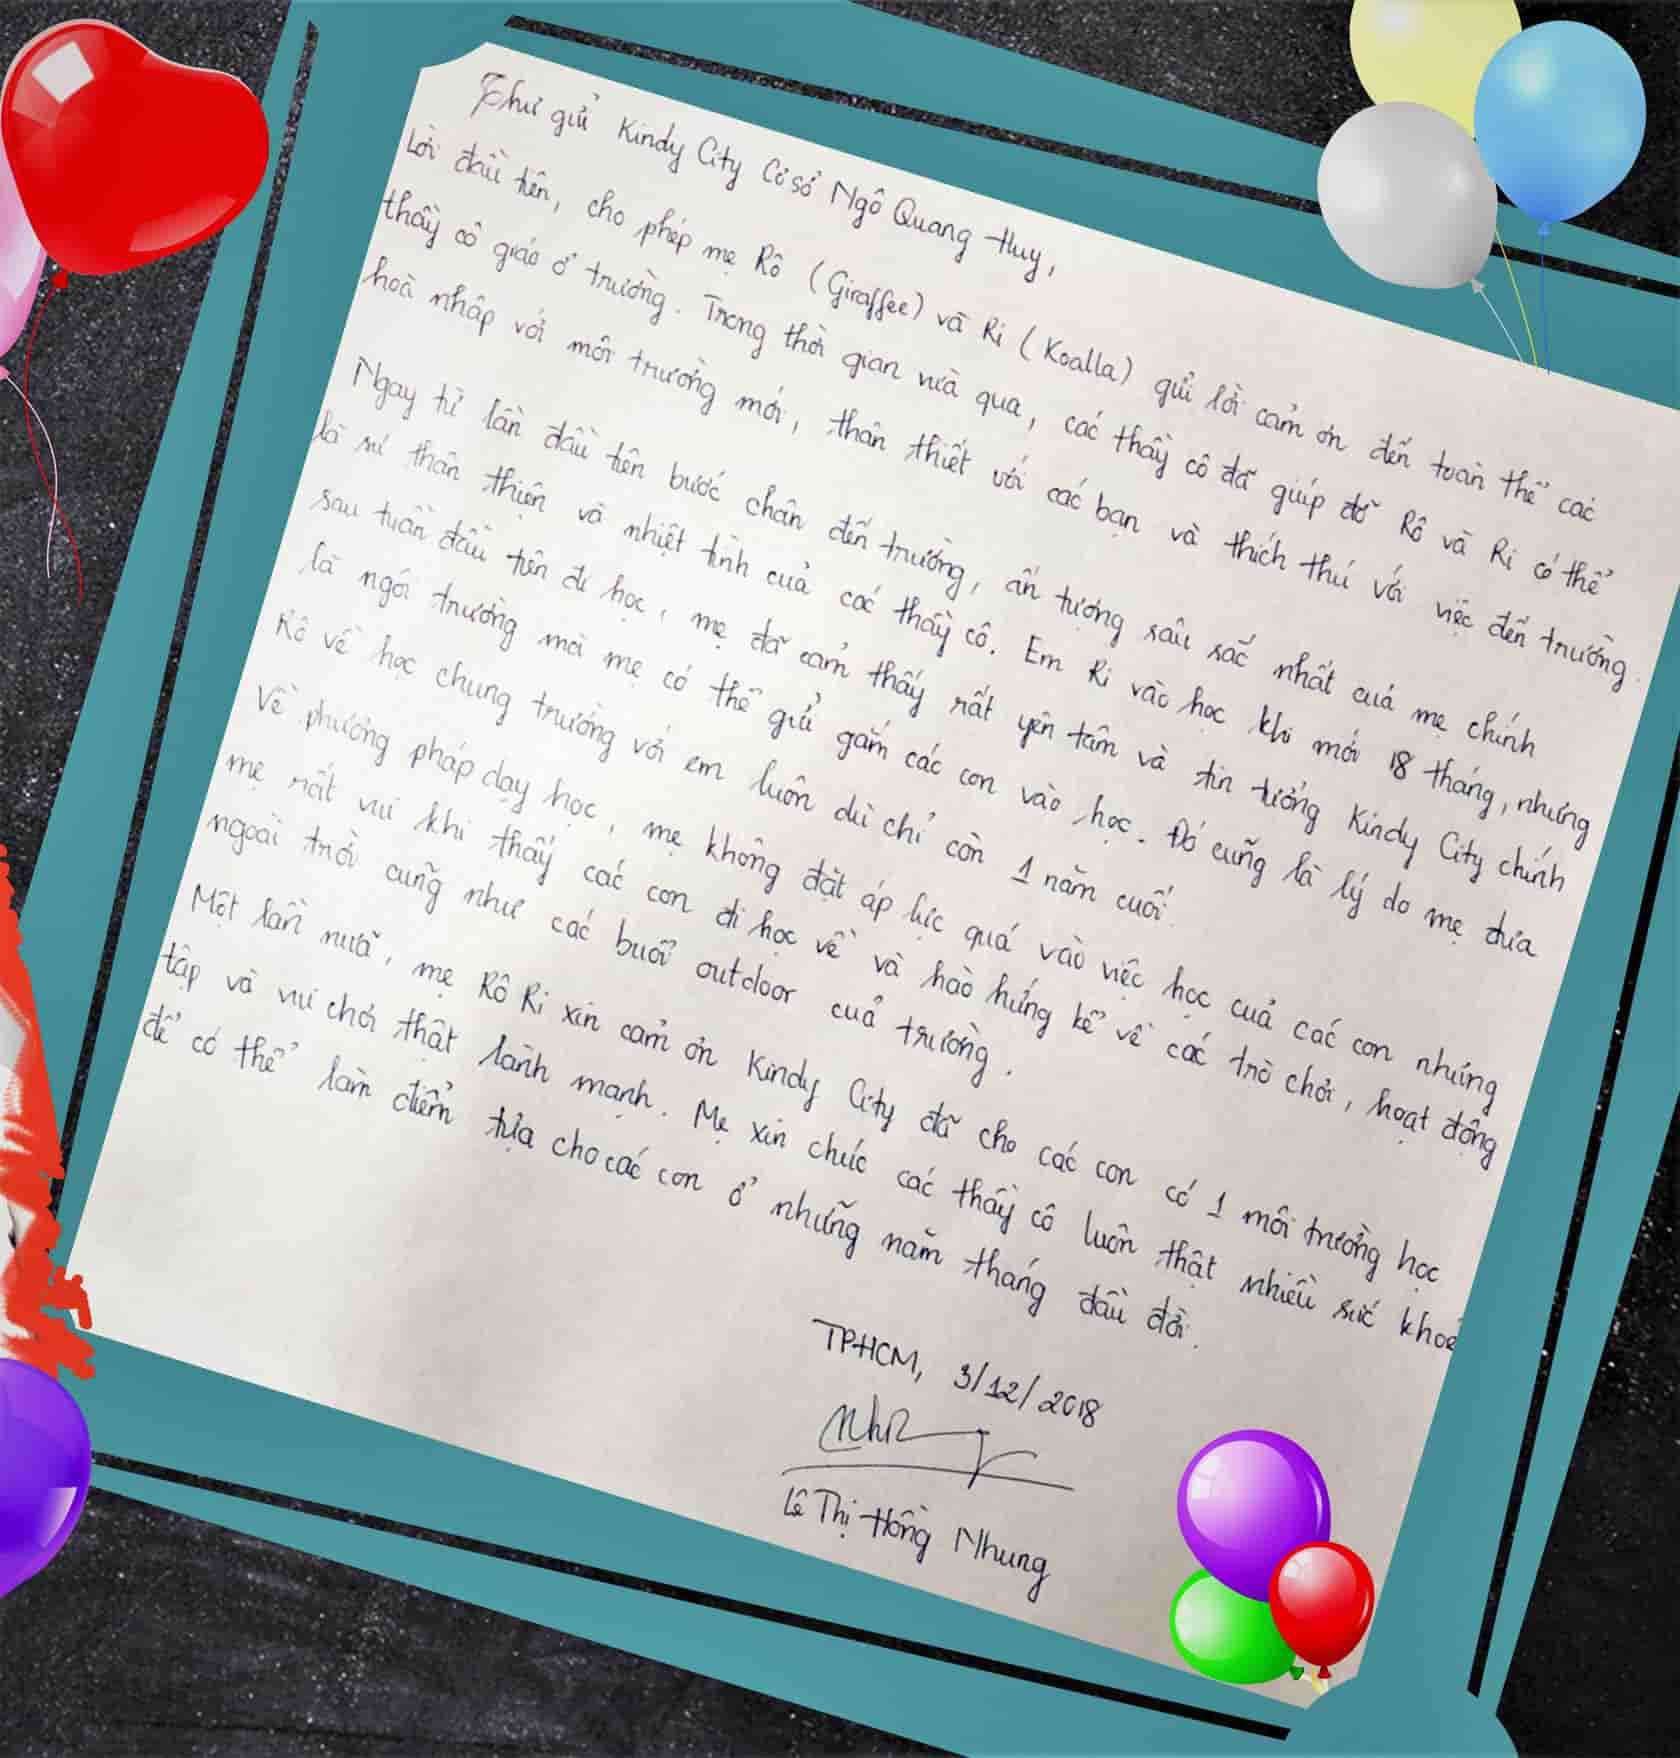 Thư gửi Kindy City Cơ sở Ngô Quang Huy,
Lời đầu tiên, cho phép mẹ Rô (Giraffee) và Ri (Koalla) gửi lời cảm ơn đến toàn thể các
thầy cô giáo ở trường. Trong thời gian vừa qua, các thầy cô đã giúp đỡ Rô và Ri có thể
hoà nhập với môi trường mới, thân thiết với các bạn và thích thú với việc đến trường.
Ngay từ lần đầu tiên bước chân đến trường, ấn tượng sâu sắc nhất của mẹ chính
là sự thân thiện và nhiệt tình của các thầy cô. Em Ri vào học khi mới 18 tháng, nhưng
sau tuần đầu tiên đi học, mẹ đã cảm thấy rất yên tâm và tin tưởng Kindy City chính
là ngôi trường mà mẹ có thể gửi gắm các con vào học. Đó cũng là lý do mẹ đưa
Rô về học chung trường với em luôn dù chỉ còn 1 năm cuối.
Về phương pháp dạy học, mẹ không đặt áp lực quá vào việc học của các con nhưng
mẹ rất vui khi thấy các con đi học về và hào hứng kể về các trò chơi, hoạt động
ngoài trời cũng như các buổi outdoor của trường.
Một lần nữa, mẹ Rô Ri xin cảm ơn Kindy City đã cho các con có 1 môi trường học
tập và vui chơi thật lành mạnh. Mẹ xin chúc các thầy cô luôn thật nhiều sức khoẻ
để có thể làm điểm tựa cho các con ở những năm tháng đầu đời.
TPHCM, 3/12/2018
Lê Thị Hồng Nhung